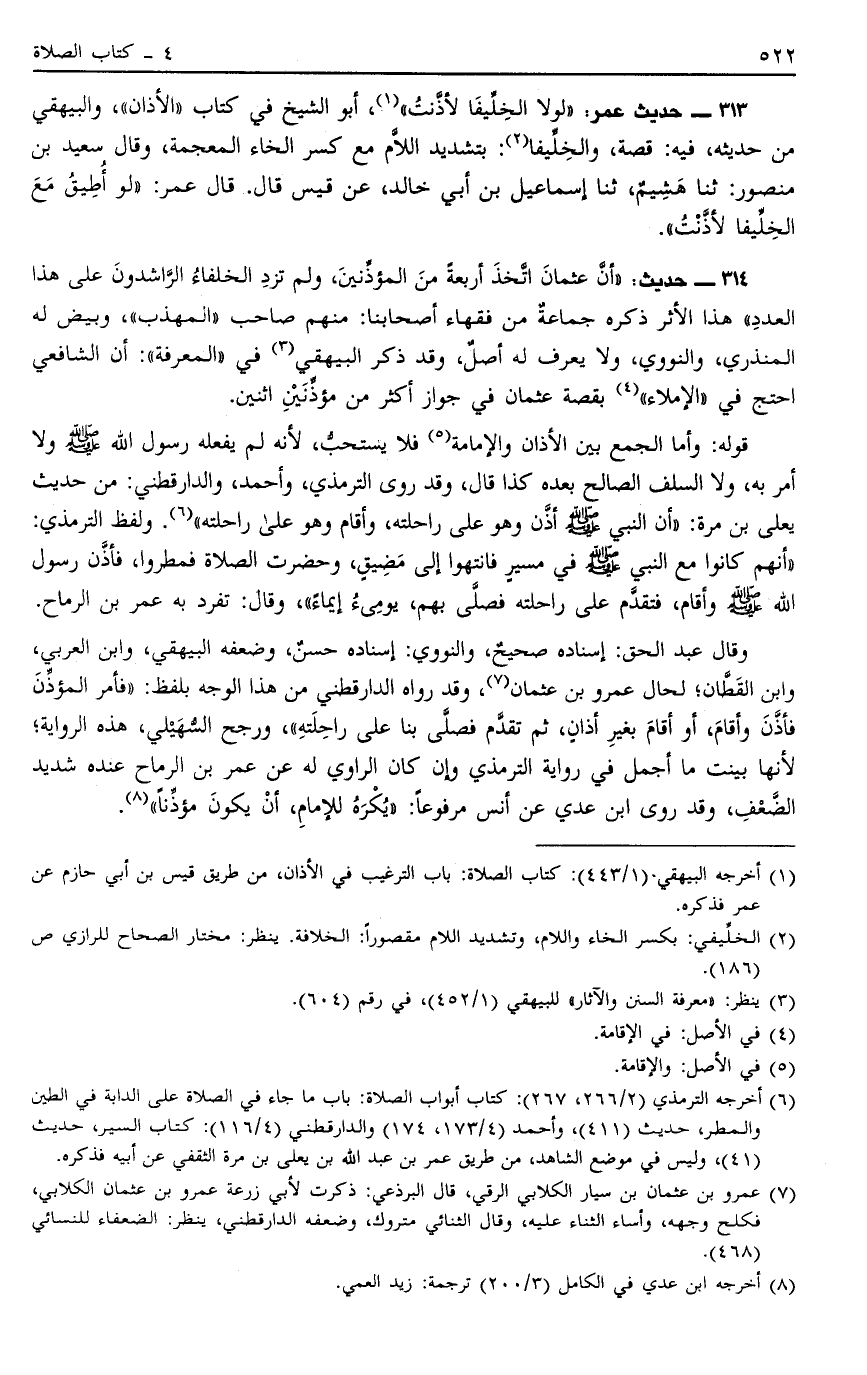 ٥٢٢
٤ ـ كتاب الصلاة
٣١٣ ـ حديث عمر: «لولا الخِلِّيفَا لأذَّنتُ»(١)، أبو الشيخ في كتاب «الأذان»، والبيهقي
من حديثه، فيه: قصة، والخِلِّيفا(٢): بتشديد اللاَّم مع كسر الخاء المعجمة، وقال سعيد بن
منصور: ثنا هَشِيمٌ، ثنا إسماعيل بن أبي خالد، عن قيس قال. قال عمر: «لو أُطِيقُ مَعَ
الخِلِّيفا لأذَّنْتُ».
٣١٤ ـ حديث: «أنَّ عثمانَ اتَّخذَ أربعةً منَ المؤذِّنينَ، ولم تزدِ الخلفاءُ الرَّاشدونَ على هذا
العددِ» هذا الأثر ذكره جماعةٌ من فقهاء أصحابنا: منهم صاحب «المهذب»، وبيض له
المنذري، والنووي، ولا يعرف له أصلٌ، وقد ذكر البيهقي(٣) في «المعرفة»: أن الشافعي
احتج في «الإملاء»(٤) بقصة عثمان في جواز أكثر من مؤذِّنَيْنِ اثنين.
قوله: وأما الجمع بين الأذان والإمامة(٥) فلا يستحبُّ، لأنه لم يفعله رسول الله ﷺ ولا
أمر به، ولا السلف الصالح بعده كذا قال، وقد روى الترمذي، وأحمد، والدارقطني: من حديث
يعلى بن مرة: «أن النبي ﷺ أذَّن وهو على راحلته، وأقام وهو علىٰ راحلته»(٦). ولفظ الترمذي:
«أنهم كانوا مع النبي ﷺ في مسيرٍ فانتهوا إلى مَضِيقٍ، وحضرت الصلاة فمطروا، فأذَّن رسول
الله ﷺ وأقام، فتقدَّم على راحلته فصلَّى بهم، يومِىءُ إيماءً»، وقال: تفرد به عمر بن الرماح.
وقال عبد الحق: إسناده صحيحٌ، والنووي: إسناده حسنٌ، وضعفه البيهقي، وابن العربي،
وابن القَطَّان؛ لحال عمرو بن عثمان(٧)، وقد رواه الدارقطني من هذا الوجه بلفظ: «فأمر المؤذِّنَ
فأذَّنَ وأقامَ، أو أقامَ بغيرِ أذانٍ، ثم تقدَّم فصلَّى بنا على راحِلَتهِ»، ورجح السُّهَيْلي، هذه الرواية؛
لأنها بينت ما أجمل في رواية الترمذي وإن كان الراوي له عن عمر بن الرماح عنده شديد
الضَّعْفِ، وقد روى ابن عدي عن أنس مرفوعاً: «يُكْرَهُ للإمامِ، أنْ يكونَ مؤذِّناً»(٨).
(١) أخرجه البيهقي (٤٤٣/١): كتاب الصلاة: باب الترغيب في الأذان، من طريق قيس بن أبي حازم عن
عمر فذكره.
(٢) الخلِّيفي: بكسر الخاء واللام، وتشديد اللام مقصوراً: الخلافة. ينظر: مختار الصحاح للرازي ص
(١٨٦).
(٣) ينظر: «معرفة السنن والآثار» للبيهقي (٤٥٢/١)، في رقم (٦٠٤).
(٤) في الأصل: في الإقامة.
(٥) في الأصل: والإقامة.
(٦) أخرجه الترمذي (٢٦٦/٢، ٢٦٧): كتاب أبواب الصلاة: باب ما جاء في الصلاة على الدابة في الطين
والمطر، حديث (٤١١)، وأحمد (١٧٣/٤، ١٧٤) والدارقطني (١١٦/٤): كتاب السير، حديث
(٤١)، وليس في موضع الشاهد، من طريق عمر بن عبد الله بن يعلى بن مرة الثقفي عن أبيه فذكره.
(٧) عمرو بن عثمان بن سيار الكلابي الرقي، قال البرذعي: ذكرت لأبي زرعة عمرو بن عثمان الكلابي،
فكلح وجهه، وأساء الثناء عليه، وقال الثنائي متروك، وضعفه الدارقطني، ينظر: الضعفاء للنسائي
(٤٦٨).
(٨) أخرجه ابن عدي في الكامل (٢٠٠/٣) ترجمة: زيد العمي.